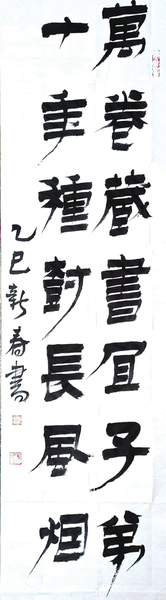 萬卷藏書宜子弟
十年種樹長風烟
乙巳新春書